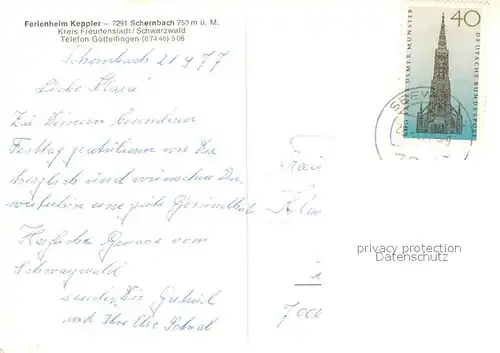 Ferienheim Keppler – 7291 Schernbach 750 m ü. M.
Kreis Freudenstadt/Schwarzwald
Telefon Göttelfingen (07448) 506
Schernbach 21 9 77
Liebe Klara
Zu Deinem besonderen
Festtag gratulieren wir Dir
herzlich und wünschen Dir
weiterhin eine gute Gesundheit
Herzliche Grüsse vom
Schwarzwald
senden Dir
und Ihre Else
40
DEUTSCHE BUNDESPOST
600 JAHRE ULMER MÜNSTER
SEEW
7000
privacy protection
Datenschutz